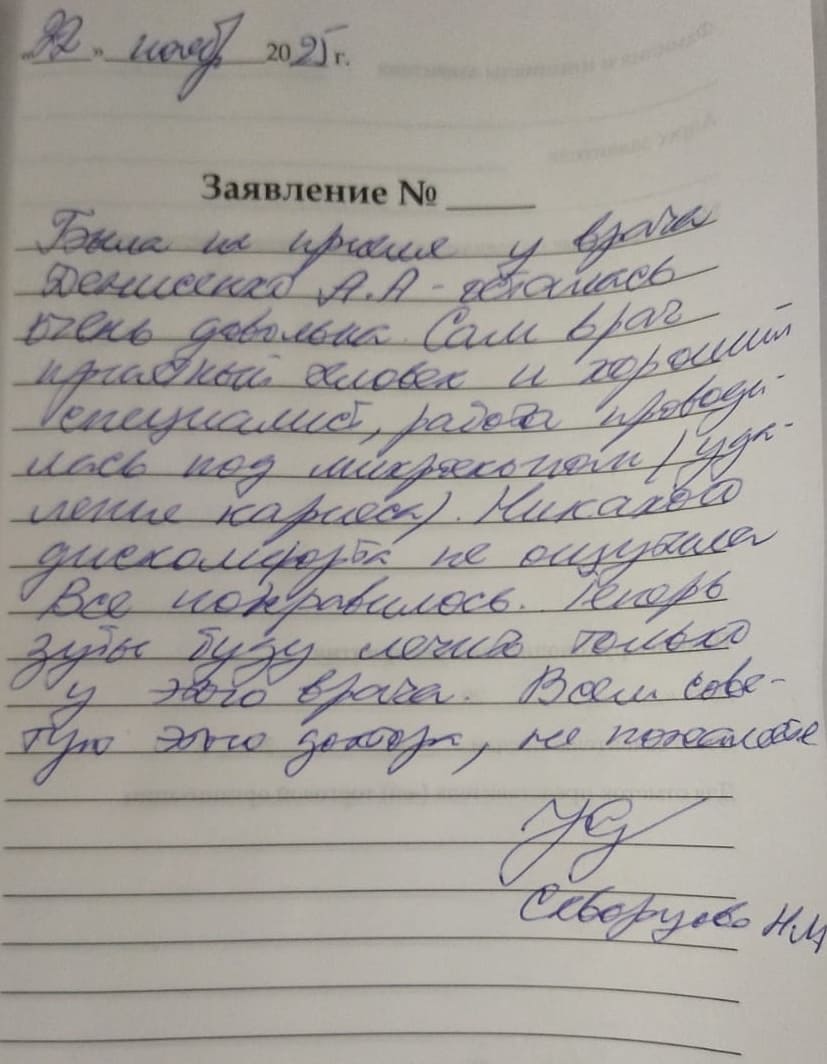 «22» нояб 2025 г.
Заявление № ____
Была на приеме у врача
Денисенко А.А - осталась
очень довольна. Сам врач
приятный человек и хороший
специалист, работа проводи-
лась под микроскопом (уда-
ление кариеса). Никакого
дискомфорта не ощутила
Все понравилось. Теперь
зубы буду лечить только
у этого врача. Всем сове-
тую этого доктора, не пожалеете
Скворцова Н.М